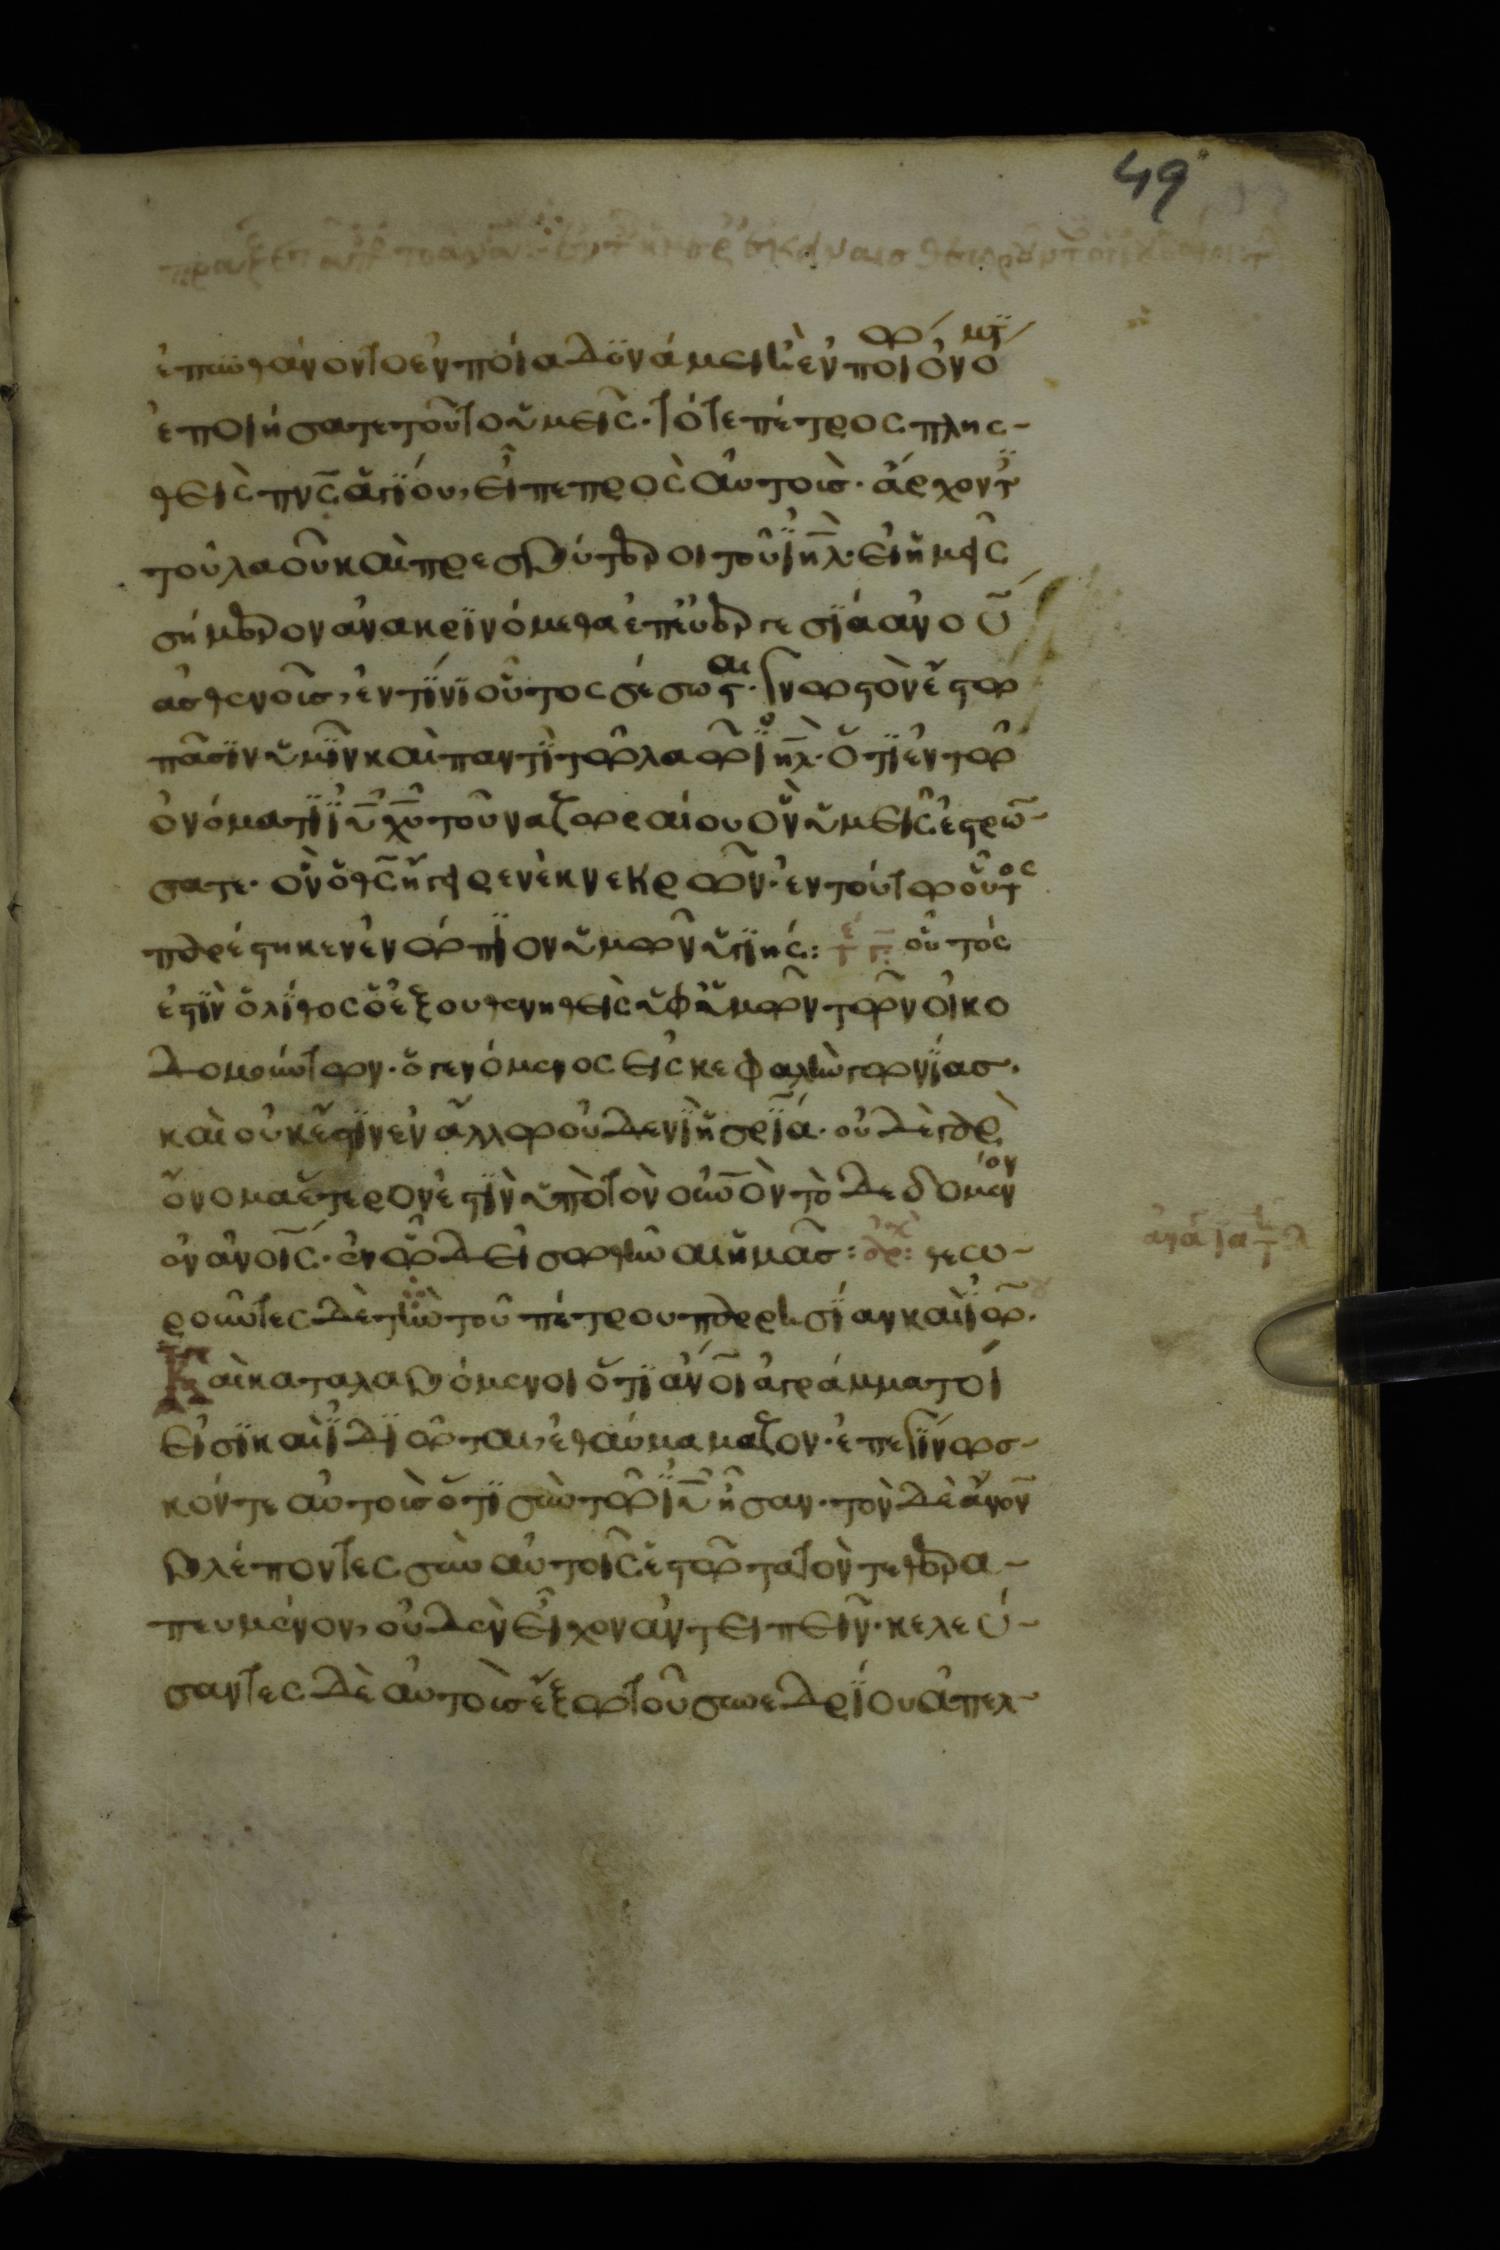 49
ἐπυνθάνοντο ἐν ποία δυνάμει ἢ ἐν ποίω ὀνομτ
ἐποιήσατε τοῦτο ὑμεῖς· τότε πέτρος πλησ
θεὶς πνς ἁγίου, εἶπε πρὸς αὐτοὺς· ἄρχοντ
τοῦ λαοῦ καὶ πρεσβύτεροι τοῦ ιηλ· εἰ ἡμεῖς
σήμερον ἀνακρινόμεθα ἐπ εὐεργεσία ανου
ἀσθενοῦς, ἐν τίνι οὗτος σέσωσται· γνωστὸν ἔστω
πᾶσιν ὑμῖν καὶ παντὶ τῶ λαῶ ιηλ· ὅτι ἐν τῶ
ὀνόματι ιυ χυ τοῦ ναζωραίου ὃν ὑμεῖς ἐσρώ
σατε· ὃν ὁ θς ἤγειρεν ἐκ νεκρῶν· ἐν τούτω οὗτος
παρέστηκεν ἐνώπιον ὑμῶν ὑγιής: οὗτός
ἐστιν ὁ λίθος ὁ ἐξουθενηθεὶς ὑφ ὑμῶν τῶν οἰκο
δομούντων· ὁ γενόμενος εἰς κεφαλὴν γωνίας·
καὶ οὐκ ἔστιν ἐν ἄλλω οὐδενὶ ἡ σρία· οὐδὲ γὰρ
ὄνομα ἕτερον ἐστιν ὑπὸ τὸν ουνον τὸ δεδομένον
ἐν ανοις· ἐν ᾧ δεῖ σωθῆναι ἡμᾶς: θεω
ροῦντες δὲ τὴν τοῦ πέτρου παρρησίαν καὶ ιω·
Καὶ καταλαβόμενοι ὅτι ανοι ἀγράμματοί
εἰσι καὶ ἰδιῶται, ἐθαύμαμαζον· ἐπεγίνωσ
κόν τε αὐτοὺς ὅτι σὺν τῶ ιυ ἦσαν· τὸν δὲ ανον
βλέποντες σὺν αὐτοῖς ἑστῶτα τὸν τεθερα
πευμένον, οὐδὲν εἶχον ἀντειπεῖν· κελεύ
σαντες δὲ αὐτοὺς ἔξω τοῦ συνεδρίου ἀπελ